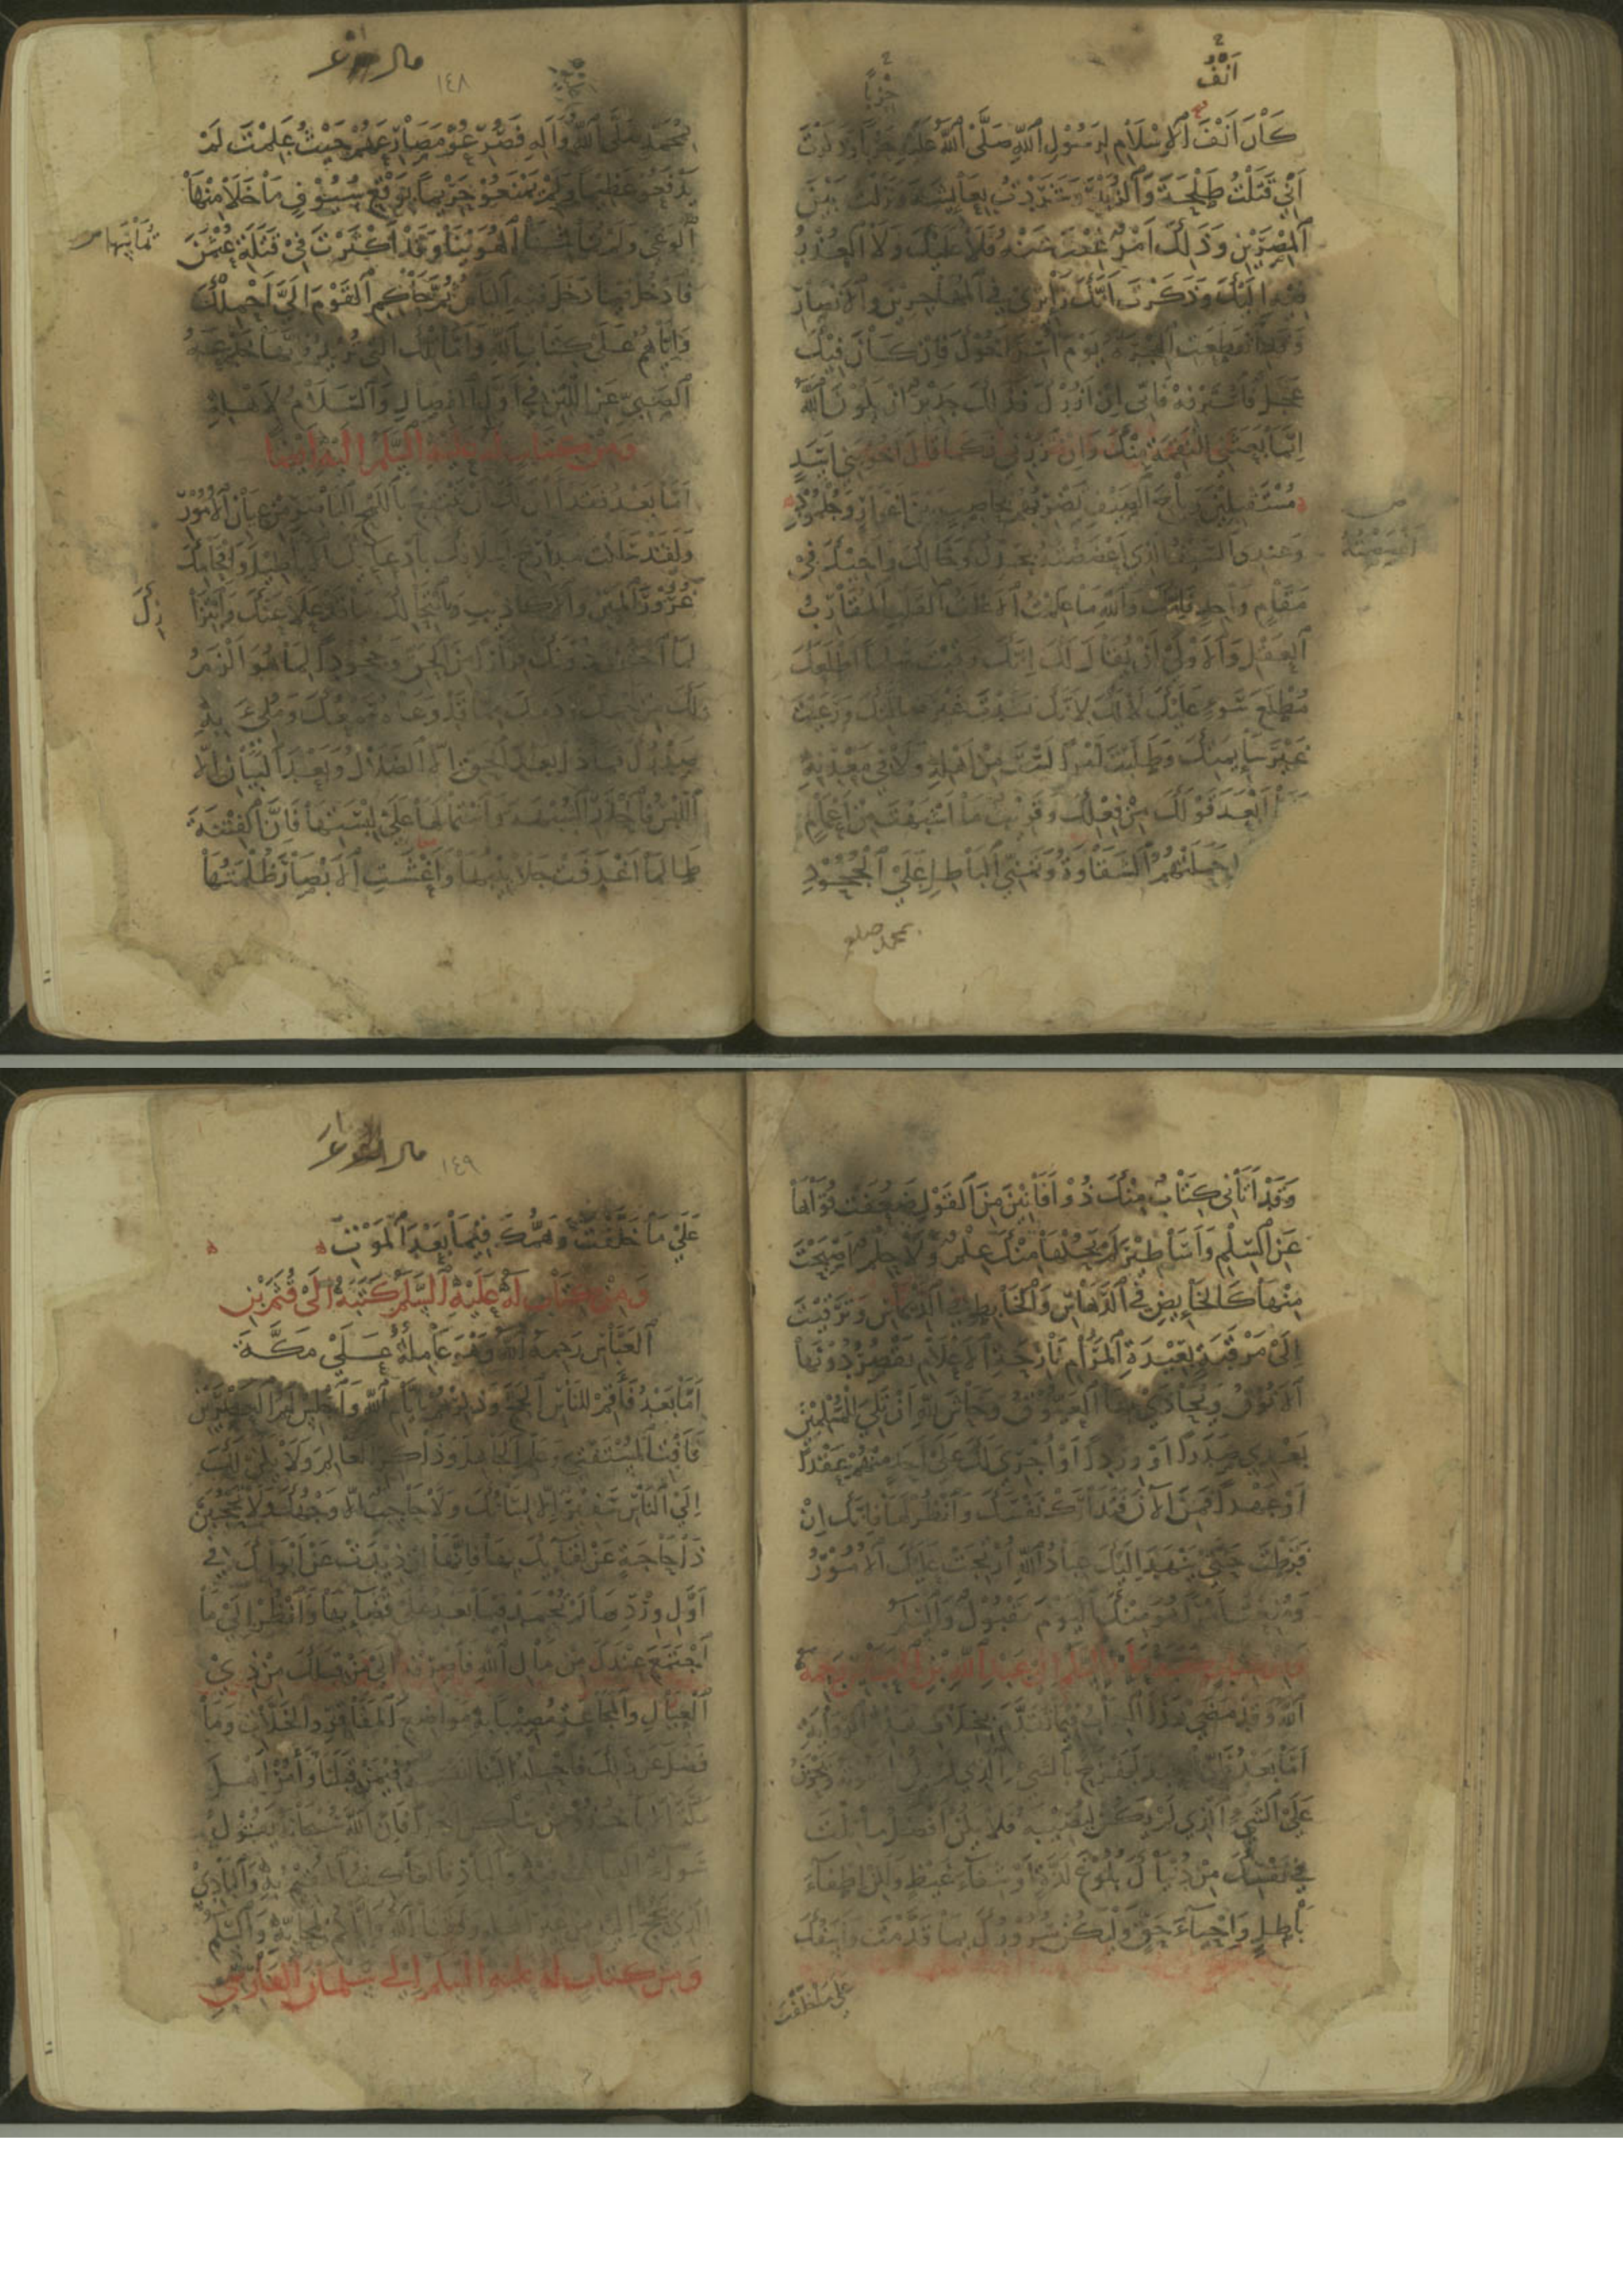 أنف
كَانَ أَنْفُ الْإِسْلَامِ لِرَسُولِ اللّٰهِ صَلَّى اللّٰهُ عَلَيْهِ حِزْبًا وَذَكَرْتَ
أَنِّي قَتَلْتُ طَلْحَةَ وَالزُّبَيْرَ وَشَرَّدْتُ بِعَائِشَةَ وَنَزَلْتُ بَيْنَ
الْمِصْرَيْنِ وَذٰلِكَ أَمْرٌ غِبْتَ عَنْهُ فَلَا عَلَيْكَ وَلَا الْعُذْرُ
فِيهِ إِلَيْكَ وَذَكَرْتَ أَنَّكَ زَائِرِي فِي الْمُهَاجِرِينَ وَالْأَنْصَارِ
وَقَدِ انْقَطَعَتِ الْهِجْرَةُ يَوْمَ أُسِرَ أَخُوكَ فَإِنْ كَانَ فِيكَ
عَجَلٌ فَاسْتَرْفِهْ فَإِنِّي إِنْ أَزُرْكَ فَذٰلِكَ جَدِيرٌ أَنْ يَكُونَ اللّٰهُ
إِنَّمَا بَعَثَنِي لِلنِّقْمَةِ مِنْكَ وَإِنْ تَزُرْنِي فَكَمَا قَالَ أَخُو بَنِي أَسَدٍ
مُسْتَقْبِلِينَ رِيَاحَ الصَّيْفِ تَضْرِبُهُمْ بِحَاصِبٍ بَيْنَ أَغْوَارٍ وَجُلْمُودِ
وَعِنْدِي السَّيْفُ الَّذِي أَعْضَضْتُهُ بِجَدِّكَ وَخَالِكَ وَأَخِيكَ فِي
مَقَامٍ وَاحِدٍ وَإِنَّكَ وَاللّٰهِ مَا عَلِمْتُ الْأَغْلَفُ الْقَلْبِ الْمُقَارِبُ
الْعَقْلِ وَالْأَوْلَى أَنْ يُقَالَ لَكَ إِنَّكَ رَقِيتَ سُلَّمًا أَطْلَعَكَ
مَطْلَعَ سُوءٍ عَلَيْكَ لَا لَكَ لِأَنَّكَ نَشَدْتَ غَيْرَ ضَالَّتِكَ وَرَعَيْتَ
غَيْرَ سَائِمَتِكَ وَطَلَبْتَ أَمْرًا لَسْتَ مِنْ أَهْلِهِ وَلَا فِي مَعْدِنِهِ
فَمَا أَبْعَدَ قَوْلَكَ مِنْ فِعْلِكَ وَقَرِيبٌ مَا أَشْبَهْتَ مِنْ أَعْمَامٍ
حَمَلَتْهُمُ الشَّقَاوَةُ وَتَمَنِّي الْبَاطِلِ عَلَى الْجُحُودِ
بمحمد صلى
١٤٨
بِمُحَمَّدٍ صَلَّى اللّٰهُ وَآلِهِ فَصُرِعُوا مَصَارِعَهُمْ حَيْثُ عَلِمْتَ لَمْ
يَدْفَعُوا عَظِيمًا وَلَمْ يَمْنَعُوا حَرِيمًا بِوَقْعِ سُيُوفٍ مَا خَلَا مِنْهَا
الْوَغَى وَلَمْ تُمَاشِهَا الْهُوَيْنَا وَقَدْ أَكْثَرْتَ فِي قَتَلَةِ عُثْمٰنَ
فَادْخُلْ فِيمَا دَخَلَ فِيهِ النَّاسُ ثُمَّ حَاكِمِ الْقَوْمَ إِلَيَّ أَحْمِلْكَ
وَإِيَّاهُمْ عَلَى كِتَابِ اللّٰهِ وَأَمَّا تِلْكَ الَّتِي تُرِيدُ فَإِنَّهَا خُدْعَةُ
الصَّبِيِّ عَنِ اللَّبَنِ فِي أَوَّلِ الْفِصَالِ وَالسَّلَامُ لِأَهْلِهِ
وَمِنْ كِتَابٍ لَهُ عَلَيْهِ السَّلَمُ إِلَيْهِ أَيْضًا
أَمَّا بَعْدُ فَقَدْ آنَ لَكَ أَنْ تَنْتَفِعَ بِاللَّمْحِ الْبَاصِرِ مِنْ عِيَانِ الْأُمُورِ
وَلَقَدْ سَلَكْتَ مَدَارِجَ أَسْلَافِكَ بِادِّعَائِكَ الْأَبَاطِيلَ وَإِقْحَامِكَ
غُرُورَ الْمَيْنِ وَالْأَكَاذِيبِ وَبِانْتِحَالِكَ مَا قَدْ عَلَا عَنْكَ وَابْتِزَازِكَ
لِمَا اخْتُزِنَ دُونَكَ فِرَارًا مِنَ الْحَقِّ وَجُحُودًا لِمَا هُوَ أَلْزَمُ
لَكَ مِنْ لَحْمِكَ وَدَمِكَ مِمَّا قَدْ وَعَاهُ سَمْعُكَ وَمُلِئَ بِهِ
صَدْرُكَ فَمَاذَا بَعْدَ الْحَقِّ إِلَّا الضَّلَالُ وَبَعْدَ الْبَيَانِ إِلَّا
اللَّبْسُ فَاحْذَرِ الشُّبْهَةَ وَاشْتِمَالَهَا عَلَى لُبْسَتِهَا فَإِنَّ الْفِتْنَةَ
طَالَمَا أَغْدَفَتْ جَلَابِيبَهَا وَأَغْشَتِ الْأَبْصَارَ ظُلْمَتُهَا
وَقَدْ أَتَانِي كِتَابٌ مِنْكَ ذُو أَفَانِينَ مِنَ الْقَوْلِ ضَعُفَتْ قُوَاهَا
عَنِ السِّلْمِ وَأَسَاطِيرَ لَمْ يَحُكْهَا مِنْكَ عِلْمٌ وَلَا حِلْمٌ أَصْبَحْتَ
مِنْهَا كَالْخَائِضِ فِي الدَّهَاسِ وَالْخَابِطِ فِي الدِّيمَاسِ وَتَرَقَّيْتَ
إِلَى مَرْقَبَةٍ بَعِيدَةِ الْمَرَامِ نَازِحَةِ الْأَعْلَامِ تَقْصُرُ دُونَهَا
الْأَنُوقُ وَيُحَاذَى بِهَا الْعَيُّوقُ وَحَاشَ لِلّٰهِ أَنْ تَلِيَ لِلْمُسْلِمِينَ
بَعْدِي صَدَرًا أَوْ وِرْدًا أَوْ أُجْرِيَ لَكَ عَلَى أَحَدٍ مِنْهُمْ عَقْدًا
أَوْ عَهْدًا فَمِنَ الْآنَ فَتَدَارَكْ نَفْسَكَ وَانْظُرْ لَهَا فَإِنَّكَ إِنْ
فَرَّطْتَ حَتَّى يَنْهَدَ إِلَيْكَ عِبَادُ اللّٰهِ أُرْتِجَتْ عَلَيْكَ الْأُمُورُ
وَمُنِعْتَ أَمْرًا هُوَ مِنْكَ الْيَوْمَ مَقْبُولٌ وَالسَّلَمُ
عَبْدِ اللّٰهِ بْنِ الْعَبَّاسِ رَحِمَهُ
اللّٰهُ وَقَدْ مَضَى هٰذَا الْكِتَابُ فِيمَا تَقَدَّمَ بِخِلَافِ هٰذِهِ الرِّوَايَةِ
أَمَّا بَعْدُ فَإِنَّ الْعَبْدَ لَيَفْرَحُ بِالشَّيْءِ الَّذِي لَمْ يَكُنْ لِيَفُوتَهُ وَيَحْزَنُ
عَلَى الشَّيْءِ الَّذِي لَمْ يَكُنْ لِيُصِيبَهُ فَلَا يَكُنْ أَفْضَلُ مَا نِلْتَ
فِي نَفْسِكَ مِنْ دُنْيَاكَ بُلُوغَ لَذَّةٍ أَوْ شِفَاءَ غَيْظٍ وَلٰكِنْ إِطْفَاءَ
بَاطِلٍ وَإِحْيَاءَ حَقٍّ وَلْيَكُنْ سُرُورُكَ بِمَا قَدَّمْتَ وَأَسَفُكَ
عَلَى مَا خَلَّفْتَ
١٤٩
عَلَى مَا خَلَّفْتَ وَهَمُّكَ فِيمَا بَعْدَ الْمَوْتِ
وَمِنْ كِتَابٍ لَهُ عَلَيْهِ السَّلَمُ كَتَبَهُ إِلَى قُثَمَ بْنِ
الْعَبَّاسِ رَحِمَهُ اللّٰهُ وَهُوَ عَامِلُهُ عَلَى مَكَّةَ
أَمَّا بَعْدُ فَأَقِمْ لِلنَّاسِ الْحَجَّ وَذَكِّرْهُمْ بِأَيَّامِ اللّٰهِ وَاجْلِسْ لَهُمُ الْعَصْرَيْنِ
فَأَفْتِ الْمُسْتَفْتِيَ وَعَلِّمِ الْجَاهِلَ وَذَاكِرِ الْعَالِمَ وَلَا يَكُنْ لَكَ
إِلَى النَّاسِ سَفِيرٌ إِلَّا لِسَانُكَ وَلَا حَاجِبٌ إِلَّا وَجْهُكَ وَلَا تَحْجُبَنَّ
ذَا حَاجَةٍ عَنْ لِقَائِكَ بِهَا فَإِنَّهَا إِنْ ذِيدَتْ عَنْ أَبْوَابِكَ فِي
أَوَّلِ وِرْدِهَا لَمْ تُحْمَدْ فِيمَا بَعْدُ عَلَى قَضَائِهَا وَانْظُرْ إِلَى مَا
اجْتَمَعَ عِنْدَكَ مِنْ مَالِ اللّٰهِ فَاصْرِفْهُ إِلَى مَنْ قِبَلَكَ مِنْ ذَوِي
الْعِيَالِ وَالْمَجَاعَةِ مُصِيبًا بِهِ مَوَاضِعَ الْمَفَاقِرِ وَالْخَلَّاتِ وَمَا
فَضَلَ عَنْ ذٰلِكَ فَاحْمِلْهُ إِلَيْنَا لِنَقْسِمَهُ فِيمَنْ قِبَلَنَا وَأْمُرْ أَهْلَ
مَكَّةَ أَلَّا يَأْخُذُوا مِنْ سَاكِنٍ أَجْرًا فَإِنَّ اللّٰهَ سُبْحَانَهُ يَقُولُ
سَوَاءً الْعَاكِفُ فِيهِ وَالْبَادِ فَالْعَاكِفُ الْمُقِيمُ بِهِ وَالْبَادِي
الَّذِي يَحُجُّ إِلَيْهِ مِنْ غَيْرِ أَهْلِهِ وَفَّقَنَا اللّٰهُ وَإِيَّاكُمْ لِمَحَابِّهِ وَالسَّلَمُ
وَمِنْ كِتَابٍ لَهُ عَلَيْهِ السَّلَمُ إِلَى سَلْمَانَ الْفَارِسِيِّ